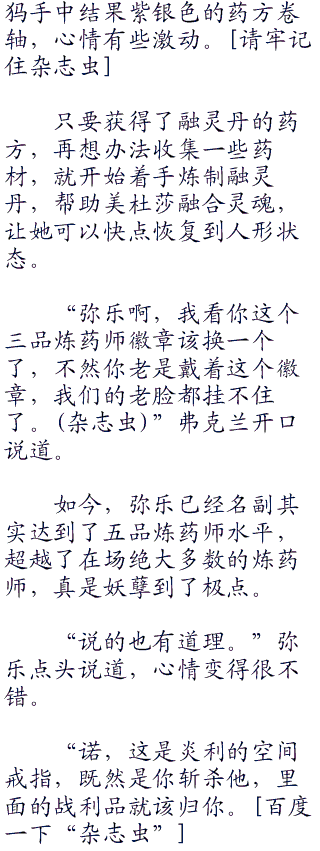 犸手中结果紫银色的药方卷
轴，心情有些激动。[请牢记
住杂志虫]
只要获得了融灵丹的药
方，再想办法收集一些药
材，就开始着手炼制融灵
丹，帮助美杜莎融合灵魂，
让她可以快点恢复到人形状
态。
“弥乐啊，我看你这个
三品炼药师徽章该换一个
了，不然你老是戴着这个徽
章，我们的老脸都挂不住
了。(杂志虫)”弗克兰开口
说道。
如今，弥乐已经名副其
实达到了五品炼药师水平，
超越了在场绝大多数的炼药
师，真是妖孽到了极点。
“说的也有道理。”弥
乐点头说道，心情变得很不
错。
“诺，这是炎利的空间
戒指，既然是你斩杀他，里
面的战利品就该归你。[百度
一下“杂志虫”]